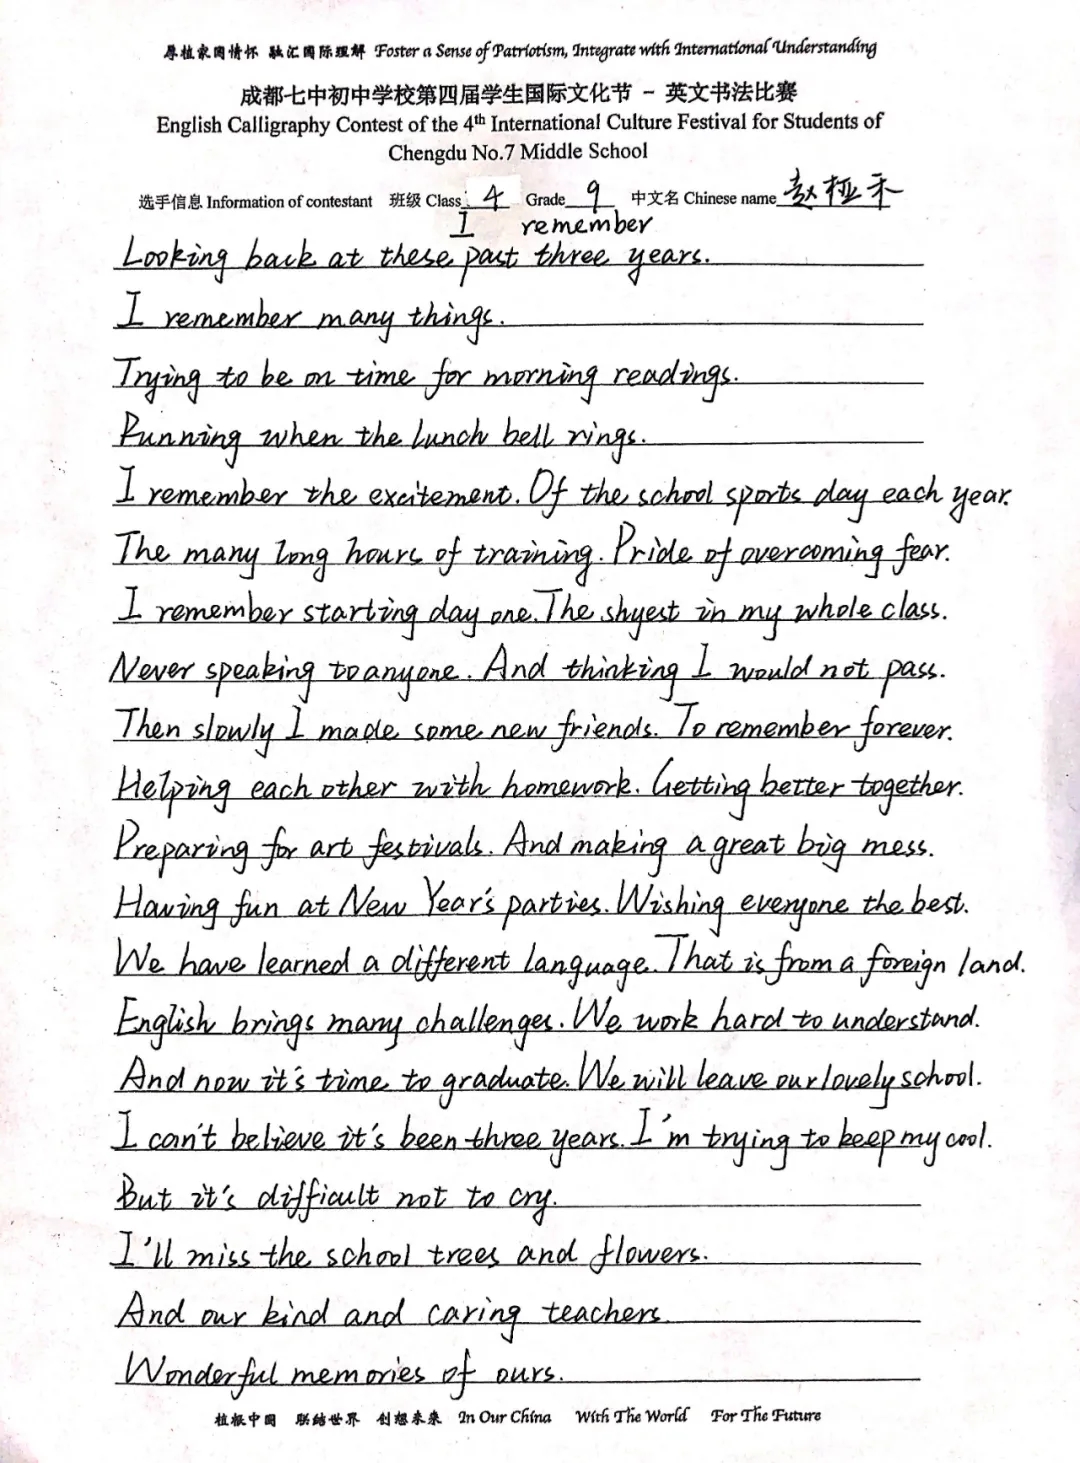 厚植家国情怀 融汇国际理解 Foster a Sense of Patriotism, Integrate with International Understanding
成都七中初中学校第四届学生国际文化节 - 英文书法比赛
English Calligraphy Contest of the 4th International Culture Festival for Students of
Chengdu No.7 Middle School
选手信息 Information of contestant 班级 Class: 4 Grade 9 中文名 Chinese name 赵桠禾
I remember
Looking back at these past three years.
I remember many things.
Trying to be on time for morning readings.
Running when the lunch bell rings.
I remember the excitement. Of the school sports day each year.
The many long hours of training. Pride of overcoming fear.
I remember starting day one. The shyest in my whole class.
Never speaking to anyone. And thinking I would not pass.
Then slowly I made some new friends. To remember forever.
Helping each other with homework. Getting better together.
Preparing for art festivals. And making a great big mess.
Having fun at New Year's parties. Wishing everyone the best.
We have learned a different language. That is from a foreign land.
English brings many challenges. We work hard to understand.
And now it's time to graduate. We will leave our lovely school.
I can't believe it's been three years. I'm trying to keep my cool.
But it's difficult not to cry.
I'll miss the school trees and flowers.
And our kind and caring teachers.
Wonderful memories of ours.
植根中国 联结世界 创想未来 In Our China With The World For The Future